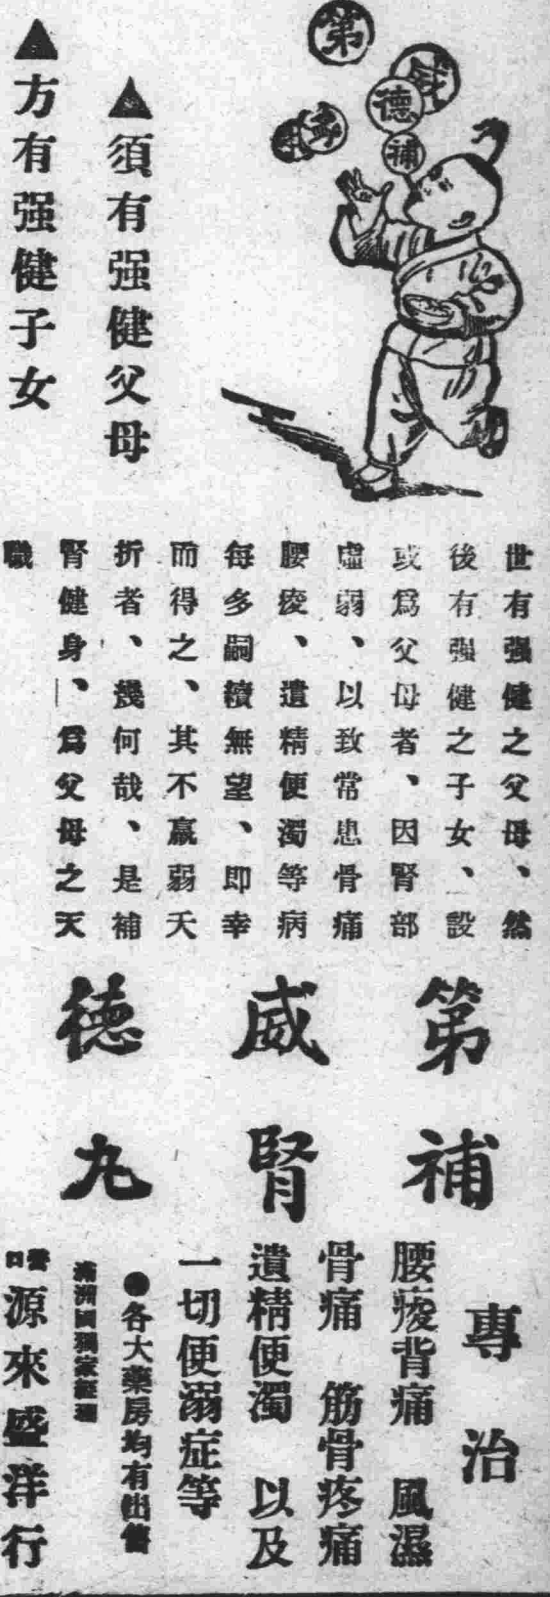 第
威
德
補
腎
▲須有强健父母
▲方有强健子女
世有强健之父母、然
後有强健之子女、設
或爲父母者、因腎部
虛弱、以致常患骨痛
腰痠、遺精便濁等病
每多嗣續無望、即幸
而得之、其不羸弱夭
折者、幾何哉、是補
腎健身、爲父母之天
職
第威德
補腎丸
專治
腰痠背痛 風濕
骨痛 筋骨疼痛
遺精便濁 以及
一切便溺症等
●各大藥房均有出售
滿洲國獨家經理
營口 源來盛洋行